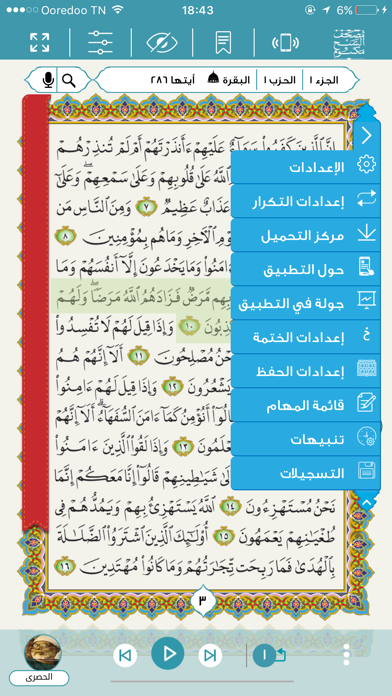 Ooredoo TN 18:43 6%
الجزء ١ الحزب ١ البقرة أيتها ٢٨٦
إِنَّ ٱلَّذِينَ كَفَرُوا۟ سَوَآءٌ عَلَيْهِمْ ءَأَنذَرْتَهُمْ أَمْ لَمْ تُنذِرْهُمْ
ٱللَّهُ عَلَىٰ قُلُوبِهِمْ وَعَلَىٰ سَمْعِهِمْ ۖ وَعَلَىٰ
عَذَابٌ عَظِيمٌ ٧ وَمِنَ ٱلنَّاسِ مَن
ٱلْءَاخِرِ وَمَا هُم بِمُؤْمِنِينَ ٨
ءَامَنُوا۟ وَمَا يَخْدَعُونَ إِلَّآ أَنفُسَهُمْ وَمَا
مَّرَضٌ فَزَادَهُمُ ٱللَّهُ مَرَضًا ۖ وَلَهُمْ
١٠ وَإِذَا قِيلَ لَهُمْ لَا تُفْسِدُوا۟
نَحْنُ مُصْلِحُونَ ١١ أَلَآ إِنَّهُمْ هُمُ
يَشْعُرُونَ ١٢ وَإِذَا قِيلَ لَهُمْ ءَامِنُوا۟
قَالُوٓا۟ أَنُؤْمِنُ كَمَآ ءَامَنَ ٱلسُّفَهَآءُ ۗ أَلَآ إِنَّهُمْ
١٣ وَإِذَا لَقُوا۟ ٱلَّذِينَ ءَامَنُوا۟
إِلَىٰ شَيَٰطِينِهِمْ قَالُوٓا۟ إِنَّا مَعَكُمْ إِنَّمَا
نَحْنُ مُسْتَهْزِءُونَ ١٤ ٱللَّهُ يَسْتَهْزِئُ بِهِمْ وَيَمُدُّهُمْ فِى
طُغْيَٰنِهِمْ يَعْمَهُونَ ١٥ أُو۟لَٰٓئِكَ ٱلَّذِينَ ٱشْتَرَوُا۟ ٱلضَّلَٰلَةَ
بِٱلْهُدَىٰ فَمَا رَبِحَت تِّجَٰرَتُهُمْ وَمَا كَانُوا۟ مُهْتَدِينَ ١٦
٣
الإعدادات
إعدادات التكرار
مركز التحميل
حول التطبيق
جولة في التطبيق
إعدادات الختمة
إعدادات الحفظ
قائمة المهام
تنبيهات
التسجيلات
الحصرى
١